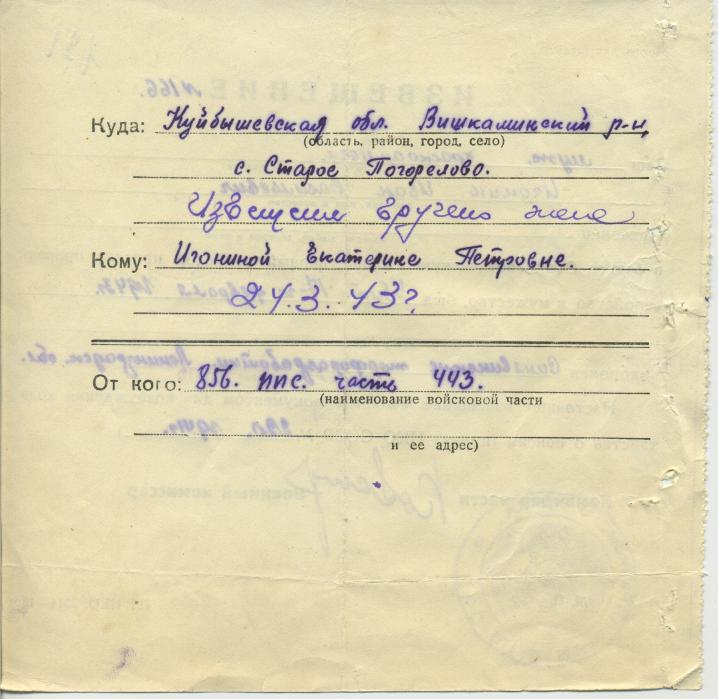 Куда: Куйбышевская обл. Вишкаминский р-н
(область, район, город, село)
с. Старое Погорелово.
Извещение вручено жене
Кому: Игониной Екатерине Петровне.
24.3.43г.
От кого: 856. ппс. часть 443.
(наименование войсковой части
и ее адрес)